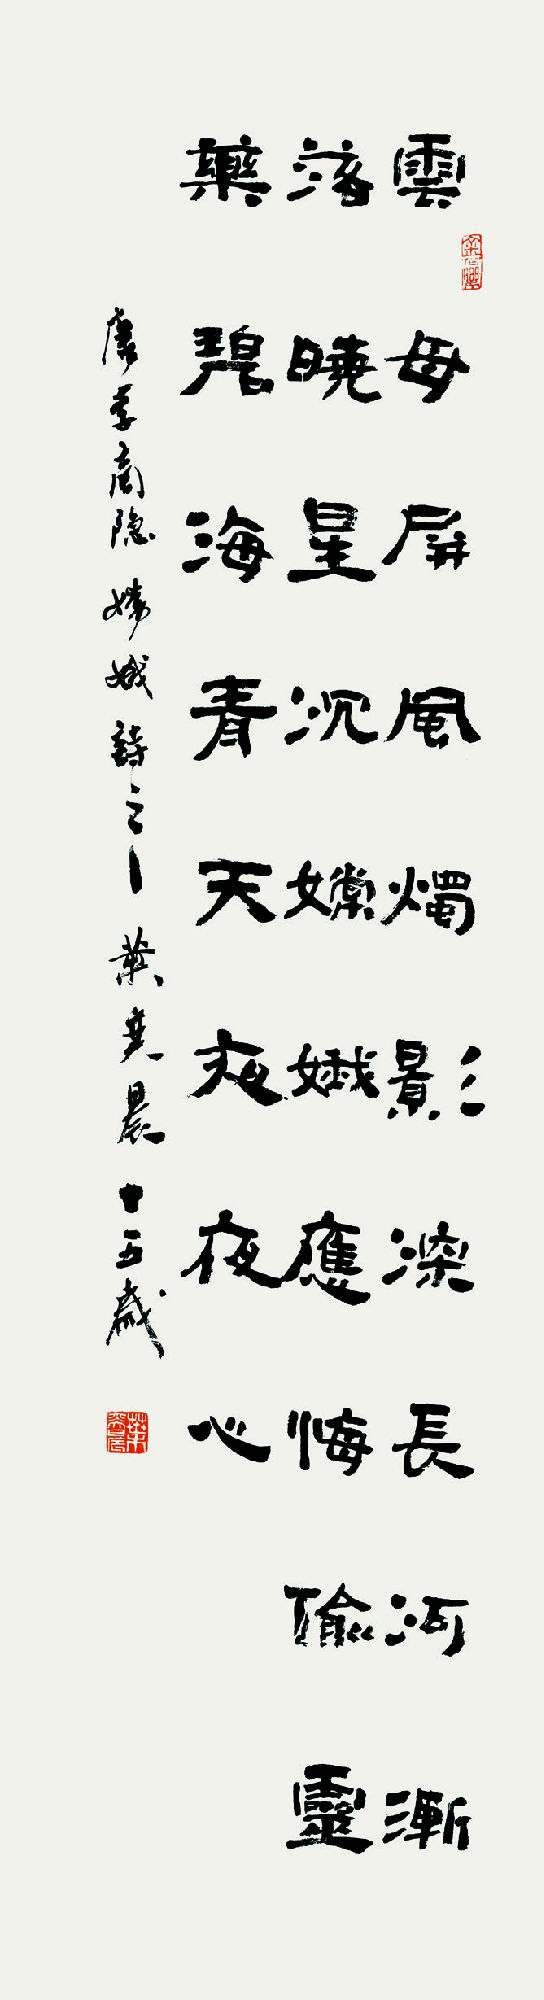 雲母屏風燭影深長河漸
落曉星沉嫦娥應悔偷靈
藥碧海青天夜夜心
唐李商隐嫦娥詩之一葉奕晨十五歲